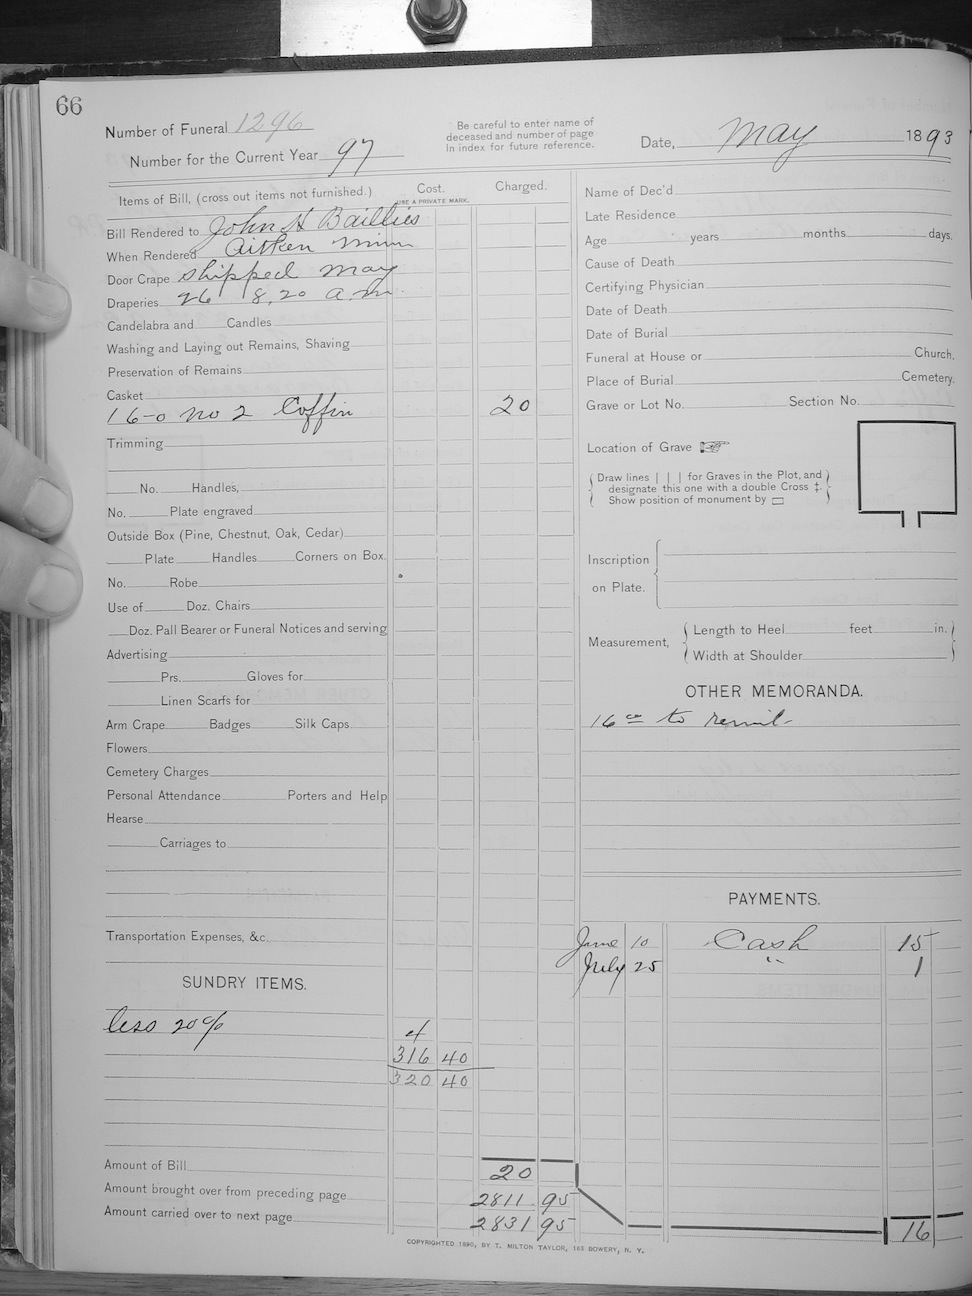 66
Number of Funeral 1296
Number for the Current Year 97
Be careful to enter name of
deceased and number of page
In index for future reference.
Date, May 1893
Items of Bill, (cross out items not furnished.)
Cost.
USE A PRIVATE MARK.
Charged.
Bill Rendered to John H Baillies
When Rendered Aitken Minn
Door Crape shipped May
Draperies 26 8,20 a.m.
Candelabra and Candles
Washing and Laying out Remains, Shaving
Preservation of Remains
Casket
16-0 No 2 Coffin 20
Trimming
No. Handles,
No. Plate engraved
Outside Box (Pine, Chestnut, Oak, Cedar)
Plate Handles Corners on Box.
No. Robe
Use of Doz. Chairs
Doz. Pall Bearer or Funeral Notices and serving
Advertising
Prs. Gloves for
Linen Scarfs for
Arm Crape Badges Silk Caps
Flowers
Cemetery Charges
Personal Attendance Porters and Help
Hearse
Carriages to
Transportation Expenses, &c.
SUNDRY ITEMS.
less 20% 4
316 40
320 40
Amount of Bill 20
Amount brought over from preceding page 2811 95
Amount carried over to next page 2831 95
Name of Dec'd
Late Residence
Age years months days.
Cause of Death
Certifying Physician
Date of Death
Date of Burial
Funeral at House or Church,
Place of Burial Cemetery.
Grave or Lot No. Section No.
Location of Grave
Draw lines | | | for Graves in the Plot, and
designate this one with a double Cross ‡.
Show position of monument by ▭
Inscription
on Plate.
Measurement,
Length to Heel feet in.
Width at Shoulder
OTHER MEMORANDA.
16 00 to remit
PAYMENTS.
June 10 Cash 15
July 25 " 1
16
COPYRIGHTED 1890, BY T. MILTON TAYLOR, 163 BOWERY, N. Y.